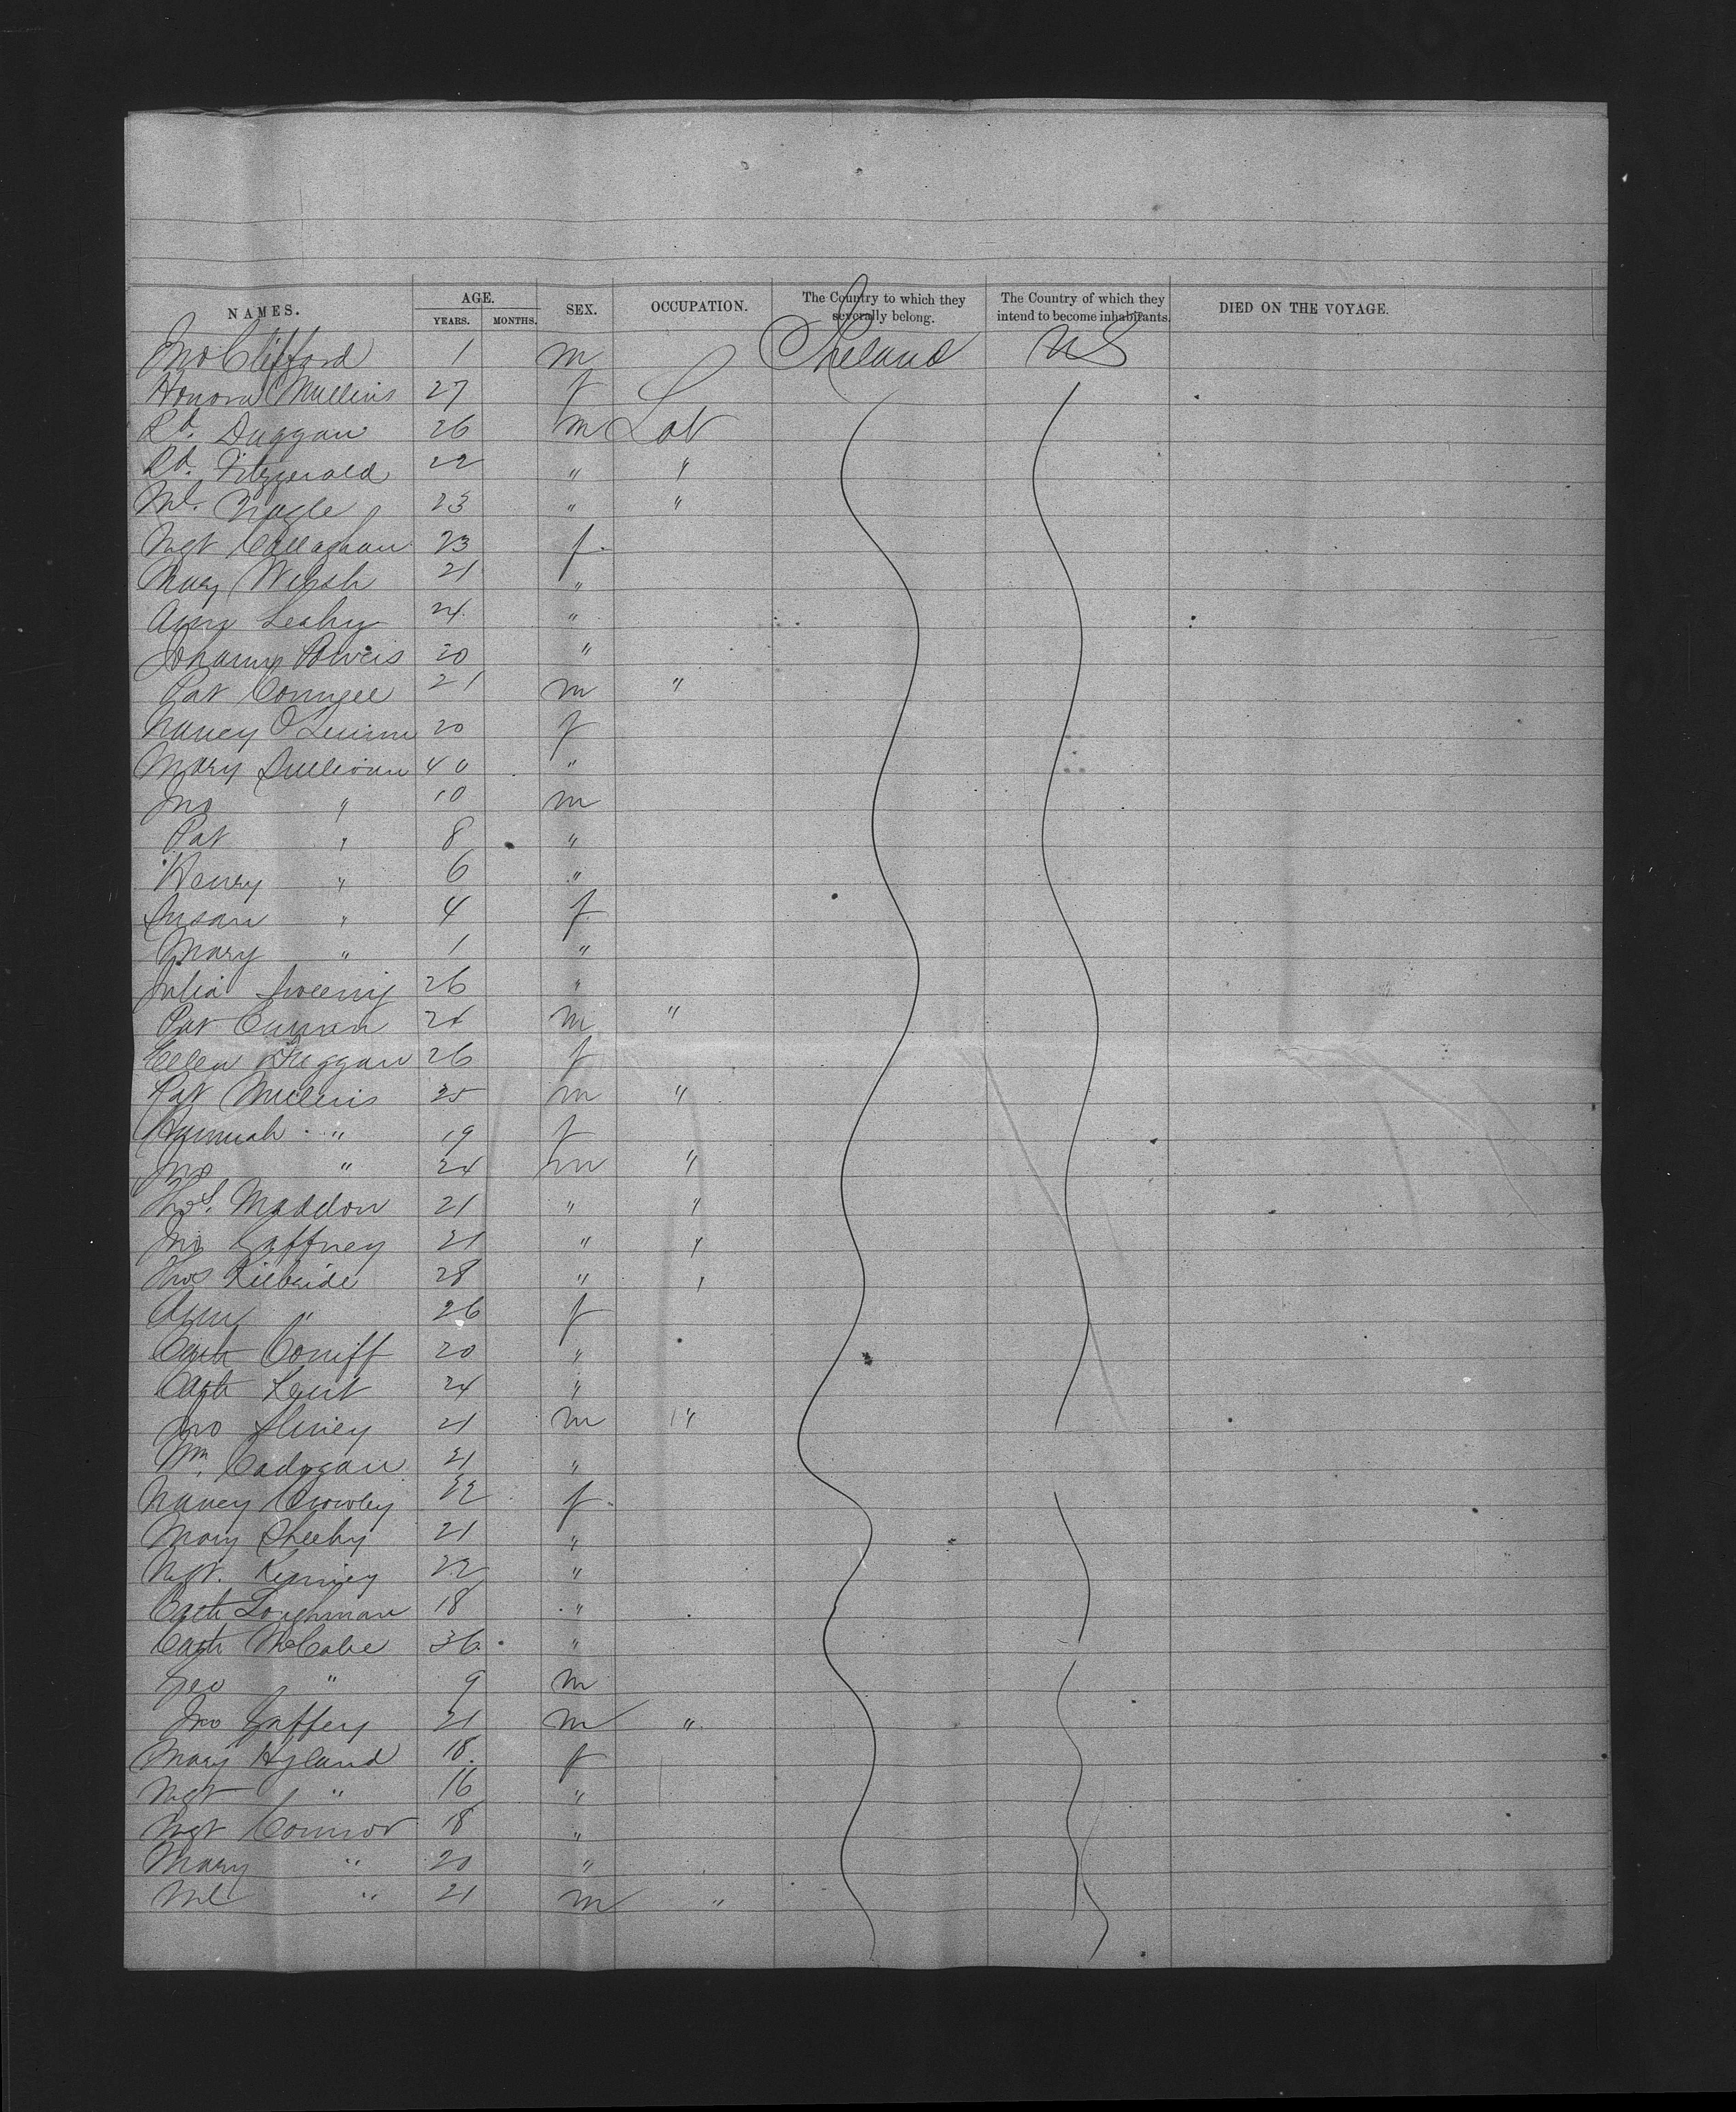 NAMES. AGE. YEARS. MONTHS. SEX. OCCUPATION. The Country to which they severally belong. The Country of which they intend to become inhabitants. DIED ON THE VOYAGE.
Jno Clifford 1 m Ireland US
Honora Mullins 27 f
Rd. Duggan 26 m Lab
Rd. Fitzgerald 22 " "
Ml. Nagle 23 " "
Mgt Callaghan 23 f
Mary Welsh 21 "
Ann Leahy 24 "
Johanna 20 "
Pat 21 m "
Nancy 20 f
Mary Sullivan 40 "
Jno " 10 m
Pat " 8 "
Henry " 6 "
Susan " 4 f
Mary " 1 "
Julia Sweeny 26 "
Pat Curran 24 m "
Ellen Duggan 26 f
Pat Mullins 25 m "
Hannah " 19 f
Jno " 24 m "
Thos. Maddon 21 " "
Jno Gaffney 21 " "
Thos Kilbride 28 " "
Ann " 26 f
Cath Coniff 20 "
Cath Kent 24 "
Jno 21 m "
Wm. Cadogan 21 "
Nancy Crowley 22 f
Mary Sheehy 21 "
Mgt. 22 "
Cath Loughman 18 "
Cath McCabe 36 "
Geo " 9 m
Jno Gaffery 21 m "
Mary Hyland 18 f
Mgt " 16 "
Mgt Connor 18 "
Mary " 20 "
Ml " 21 m "